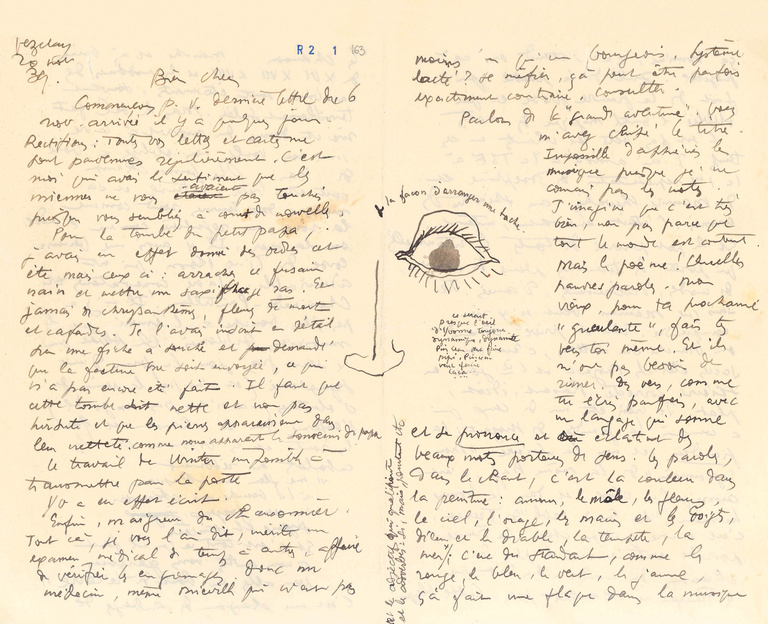 Vezelay
20 nov
39.
R2 1 163
Bien chers
Commençons p. v. dernière lettre du 6
nov. arrivée il y a quelques jours.
Rectifions : Toutes vos lettres et cartes me
sont parvenues régulièrement. C'est
moi qui avais le sentiment que les
miennes ne vous avaient pas touchés
puisque vous sembliez à court de nouvelles.
Pour la tombe du petit papa,
j'avais en effet donné des ordres cet
été mais ceux ci : arracher ce fusain
nain et mettre un saxifrage ras. Et
jamais de chrysanthèmes, fleurs de mort
et cafardes. Je l'avais indiqué en détail
sur une fiche à souche et demandé
que la facture me soit envoyée, ce qui
n'a pas encore été fait. Il faut que
cette tombe soit nette et non pas
hirsute et que les pierres apparaissent dans
leur netteté comme nous apparaît le souvenir de papa
Le travail de Winter
transmettre par la poste
Y v a en effet écrit.
Enfin, maigreur du Chaxonnier.
Tout ça, je vous l'ai dit, mérite un
examen médical de temps à autre, affaire
de vérifier les engrenages donc un
médecin, même qui n'est pas
moins bourgeois, système
lacté ? Se méfier, ça peut être parfois
exactement contraire. Consulter.
Parlons de la "grande aventure". Vous
m'avez le titre.
Impossible d'apprécier la
musique puisque je ne
connais pas les notes.
J'imagine que c'est très
bien, non pas parce que
tout le monde est content.
Mais le poème ! Quelles
pauvres paroles. Mon
vieux, pour ta prochaine
"gueulante", fais tes
vers toi même. Et ils
n'ont pas besoin de
rimer. Des vers, comme
tu écris parfois, avec
un langage qui sonne
et se prononce et éclatant des
beaux mots porteurs de sens. Les paroles,
dans le chant, c'est la couleur dans
la peinture : amour, le môle, les fleurs,
le ciel, l'orage, les mains et les doigts,
Dieu et le diable, la tempête, la
mer, c'est du standard, comme le
rouge, le bleu, le vert, le jaune,
ça fait une flaque dans la musique
la façon d'arranger une tache.
ce serait
presque l'œil
d'Yvonne toujours
dynamique, dynamite
Pinceau une fine
pipi, Pinceau
veut faire
caca...